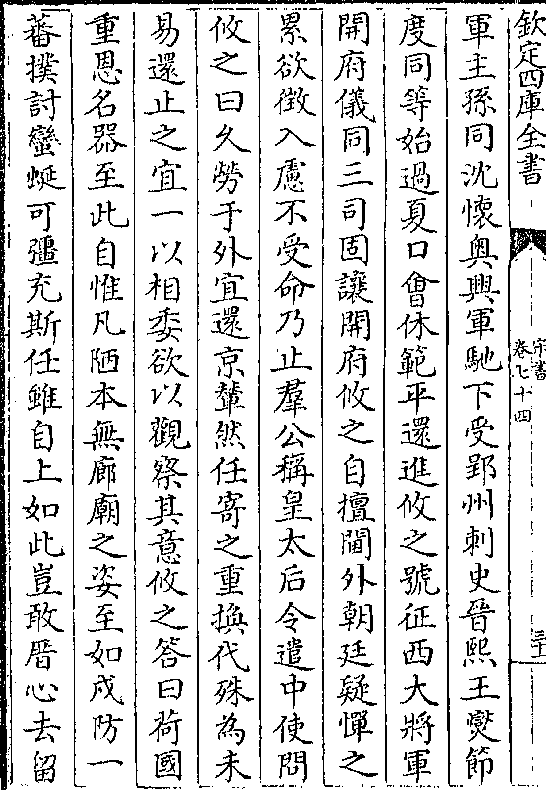 欽定四庫全書
宋書
卷七十四
三十
軍主孫同沈懷奥興軍馳下受郢州刺史晉熙王燮節
度同等始過夏口會休範平還進攸之號征西大將軍
開府儀同三司固讓開府攸之自擅閫外朝廷疑憚之
累欲徵入慮不受命乃止羣公稱皇太后令遣中使問
攸之曰久勞于外宜還京輦然任寄之重換代殊為未
易還止之宜一以相委欲以觀察其意攸之答曰荷國
重恩名器至此自惟凡陋本無廊廟之姿至如戍防一
蕃撲討蠻蜒可彊充斯任雖自上如此豈敢厝心去留